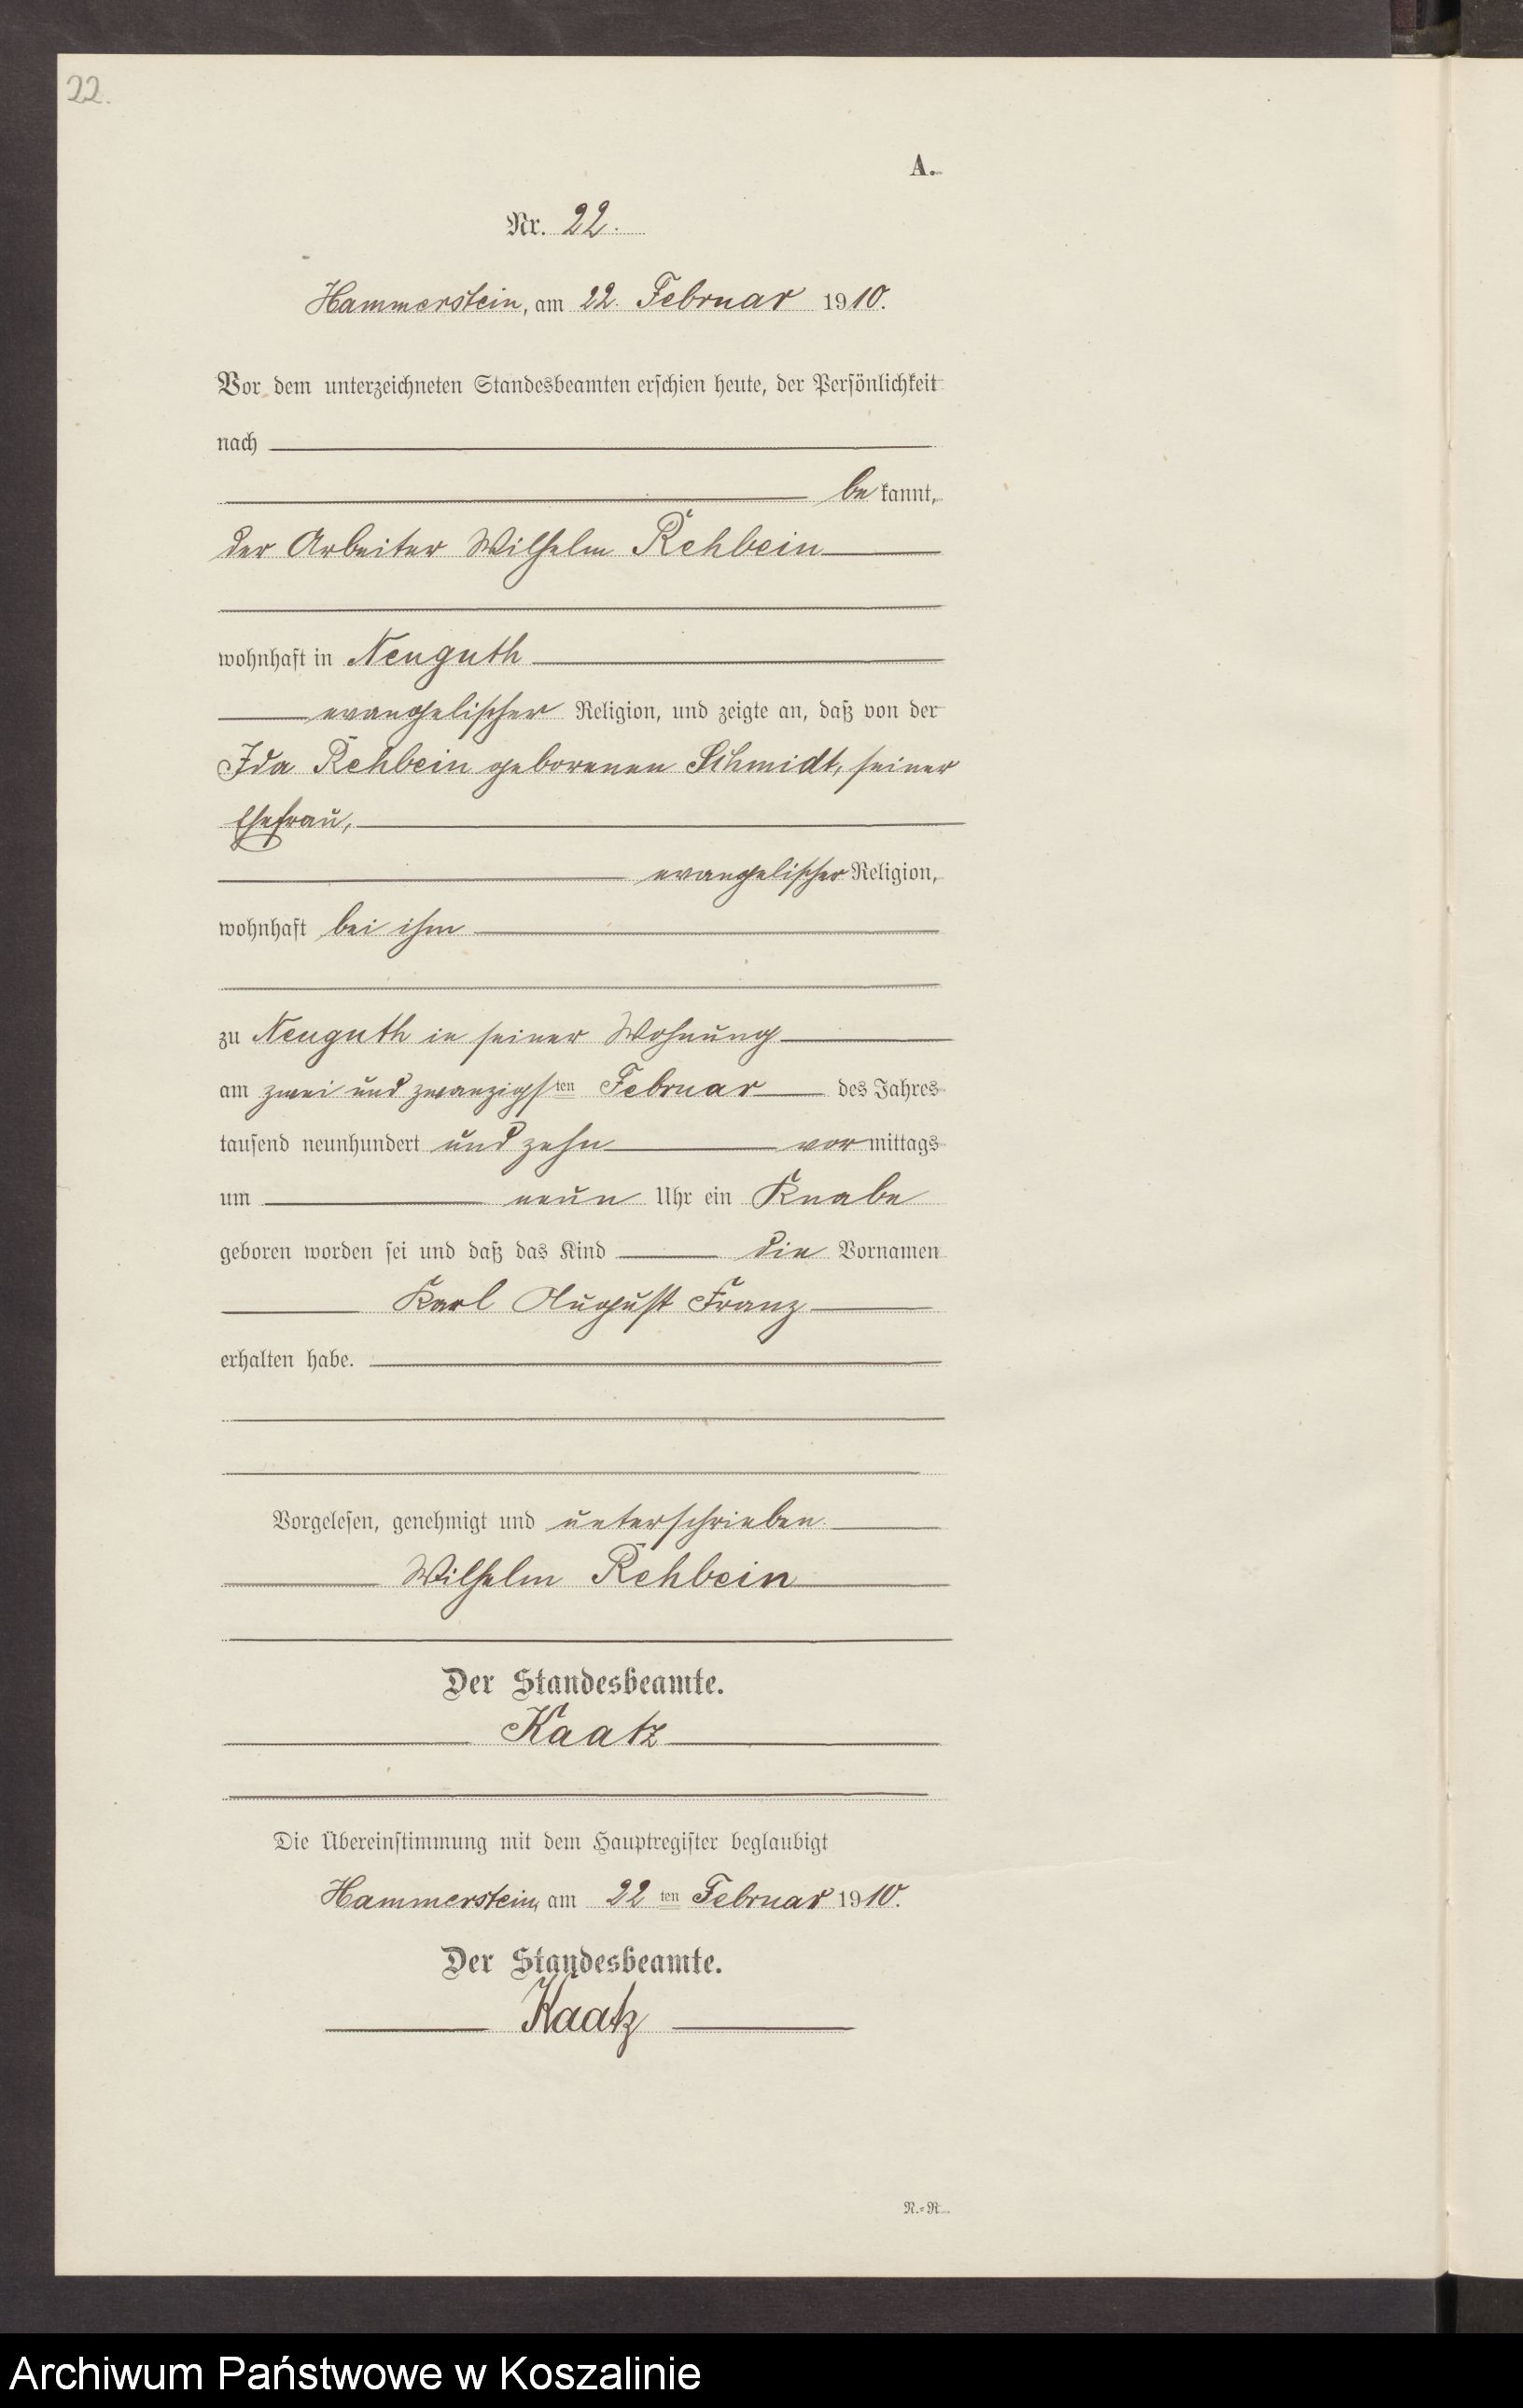 22.
A.
Nr. 22.
Hammerstein, am 22. Februar 1910.
Vor dem unterzeichneten Standesbeamten erschien heute, der Persönlichkeit
nach
be kannt,
der Arbeiter Wilhelm Rehbein
wohnhaft in Neuguth
evangelischer Religion, und zeigte an, daß von der
Ida Rehbein geborenen Schmidt, seiner
Ehefrau,
evangelischer Religion,
wohnhaft bei ihm
zu Neuguth in seiner Wohnung
am zwei und zwanzigsten Februar des Jahres
tausend neunhundert und zehn vormittags
um neun Uhr ein Knabe
geboren worden sei und daß das Kind die Vornamen
Karl August Franz
erhalten habe.
Vorgelesen, genehmigt und unterschrieben.
Wilhelm Rehbein
Der Standesbeamte.
Kaatz
Die Übereinstimmung mit dem Hauptregister beglaubigt
Hammerstein, am 22 ten Februar 1910.
Der Standesbeamte.
Kaatz
N.=R.
Archiwum Państwowe w Koszalinie